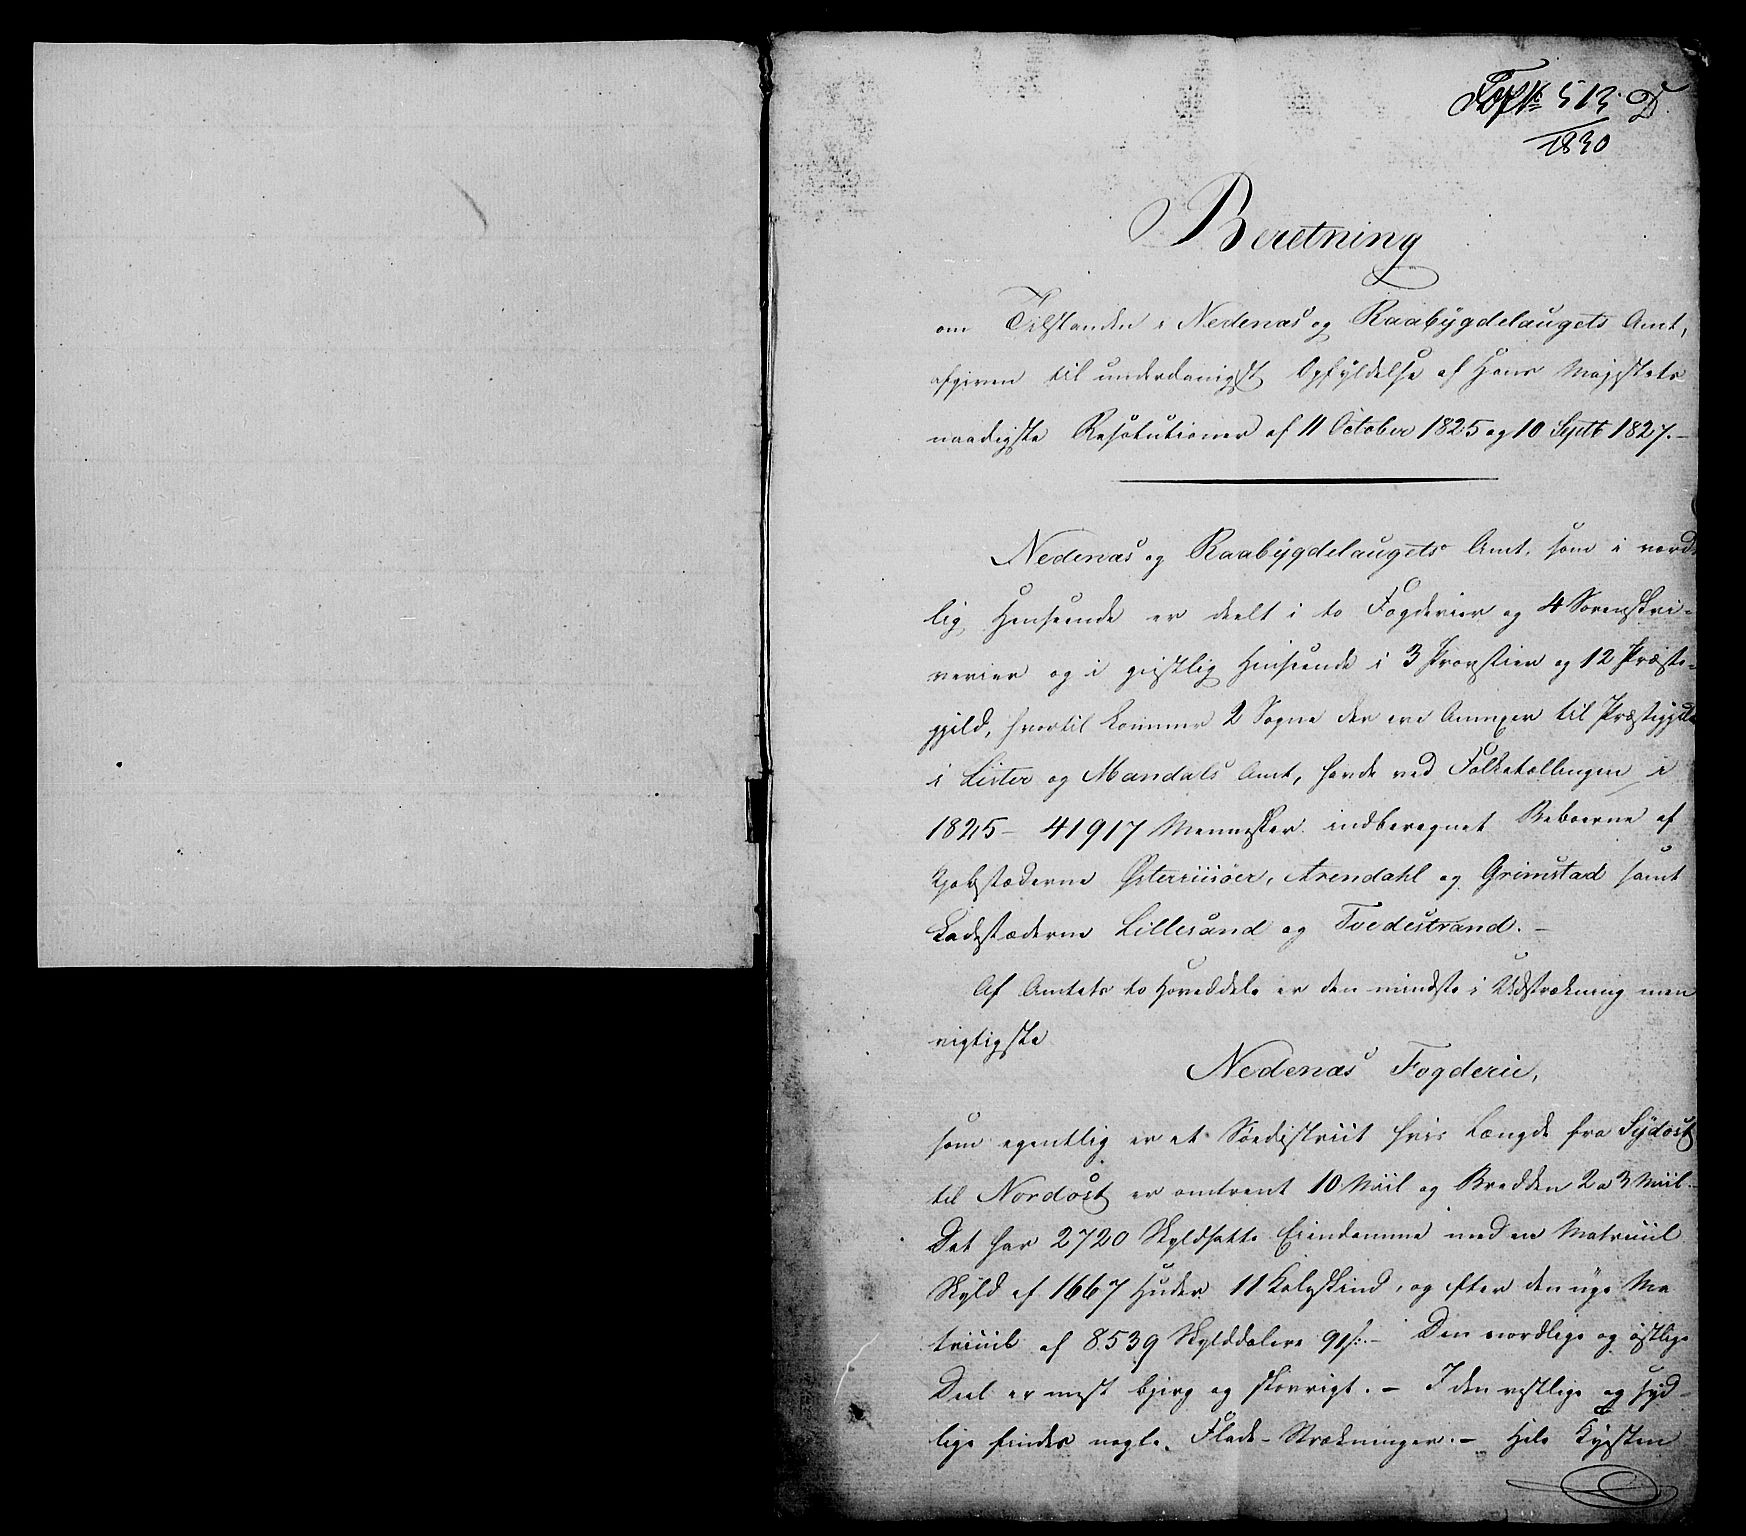 513. D
1830
Beretning
om Tilstanden i Nedenæs og Raabygdelaugets Amt,
afgiven til underdanigst Opfyldelse af Hans Majestæts
naadigste Resolutioner af 11 October 1825 og 10 Septb 1827.-
Nedenæs og Raabygdelaugets Amt, som i verds
lig Henseende er deelt i to Fogderier og 4 Sorenskri-
verier og i geistlig Henseende i 3 Provstier og 12 Præste-
gjeld, hvortil kommer 2 Sogne der ere Annexer til Præstegjeld
i Lister og Mandals Amt, havde ved Folketællingen i
1825 - 41917 Mennesker indberegnet Beboerne af
Kjøbstæderne Østerriisöer, Arendahl og Grimstad samt
Ladestæderne Lillesand og Tvedestrand. -
Af Amtets to Hoveddele er den mindste i Udstrækning men
vigtigste
Nedenæs Fogderie,
som egentlig er et Søedistrict hvis Længde fra Sydost
til Nordost er omtrent 10 Miil og Bredden 2 a 3 Miil -
Det har 2720 Skyldsatte Eiendomme med en Matricul
Skyld af 1667 Huder 11 Kalvskind, og efter den nye Ma
tricul af 8539 Skylddalere 91 s. - Den nordlige og östlige
Deel er mest bjerg og skovrigt. - I den vestlige og syd-
lige findes nogle Flade-Strækninger. - Hele Kysten